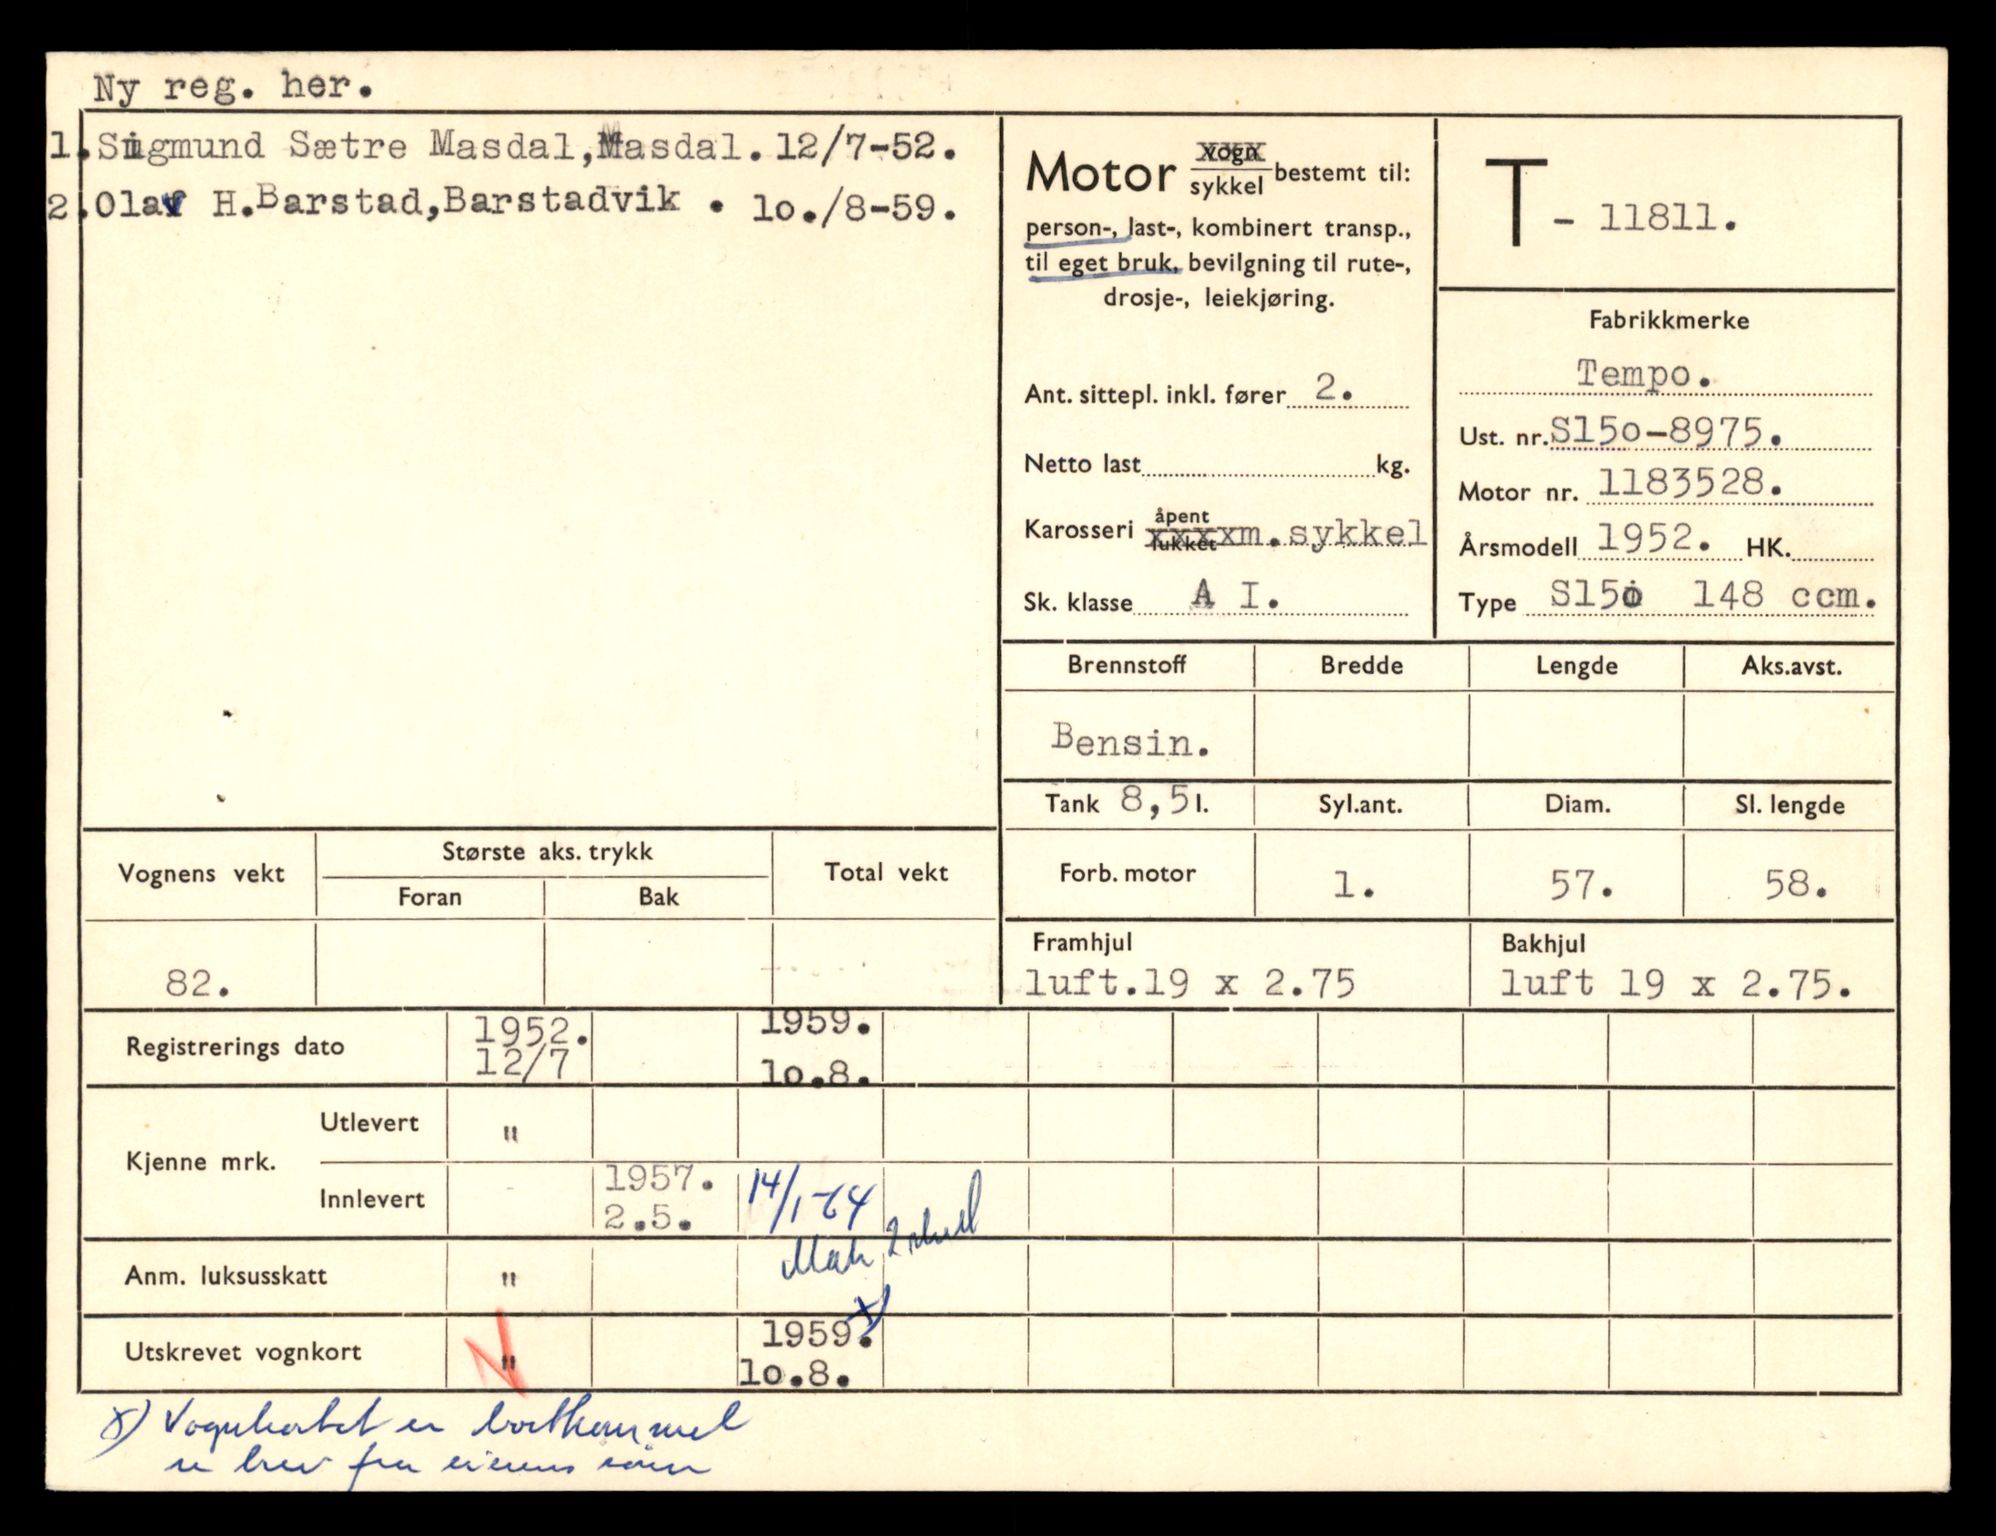 Ny reg. her.
1. Sigmund Sætre Masdal, Masdal. 12/7-52.
2. Olav H. Barstad, Barstadvik . lo./8-59.
Motor vogn sykkel bestemt til:
person-, last-, kombinert transp.,
til eget bruk, bevilgning til rute-,
drosje-, leiekjøring.
Ant. sittepl. inkl. fører 2.
Netto last kg.
Karosseri åpent lukket m.sykkel
Sk. klasse A I.
T - 11811.
Fabrikkmerke
Tempo.
Ust. nr. S15o-8975.
Motor nr. 1183528.
Årsmodell 1952. HK.
Type S15o 148 ccm.
Brennstoff Bredde Lengde Aks.avst.
Bensin.
Tank 8,5 l. Syl.ant. Diam. Sl. lengde
Forb. motor 1. 57. 58.
Framhjul Bakhjul
luft.19 x 2.75 luft 19 x 2.75.
Vognens vekt Største aks. trykk Total vekt
Foran Bak
82.
Registrerings dato 1952. 12/7 1959. lo.8.
Kjenne mrk.
Utlevert "
Innlevert 1957. 2.5. 14/1-64
Anm. luksusskatt "
x)
Utskrevet vognkort " 1959. lo.8.
x) Vognkortet er bortkommet
se brev fra eierens